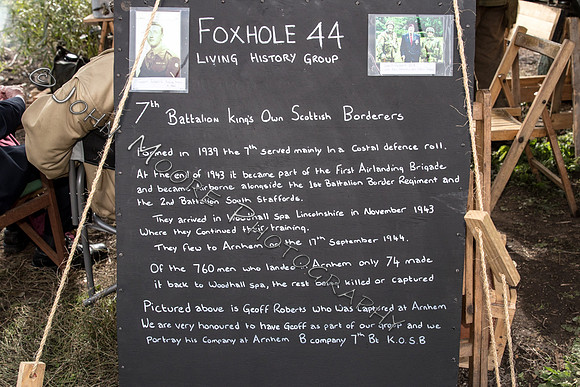 FOXHOLE 44
LIVING HISTORY GROUP
7th Battalion King's Own Scottish Borderers
Formed in 1939 the 7th served mainly in a Costal defence roll.
At the end of 1943 it became part of the First Airlanding Brigade
and became Airborne alongside the 1st Battalion Border Regiment and
the 2nd Battalion South Staffords.
They arrived in Woodhall Spa Lincolnshire in November 1943
Where they Continued their training.
They flew to Arnhem on the 17th September 1944.
Of the 760 men who landed Arnhem only 74 made
it back to Woodhall Spa, the rest being killed or captured
Pictured above is Geoff Roberts who Was Captured at Arnhem
We are very honoured to have Geoff as part of our group and we
Portray his Company at Arnhem B company 7th Bt K.O.S.B